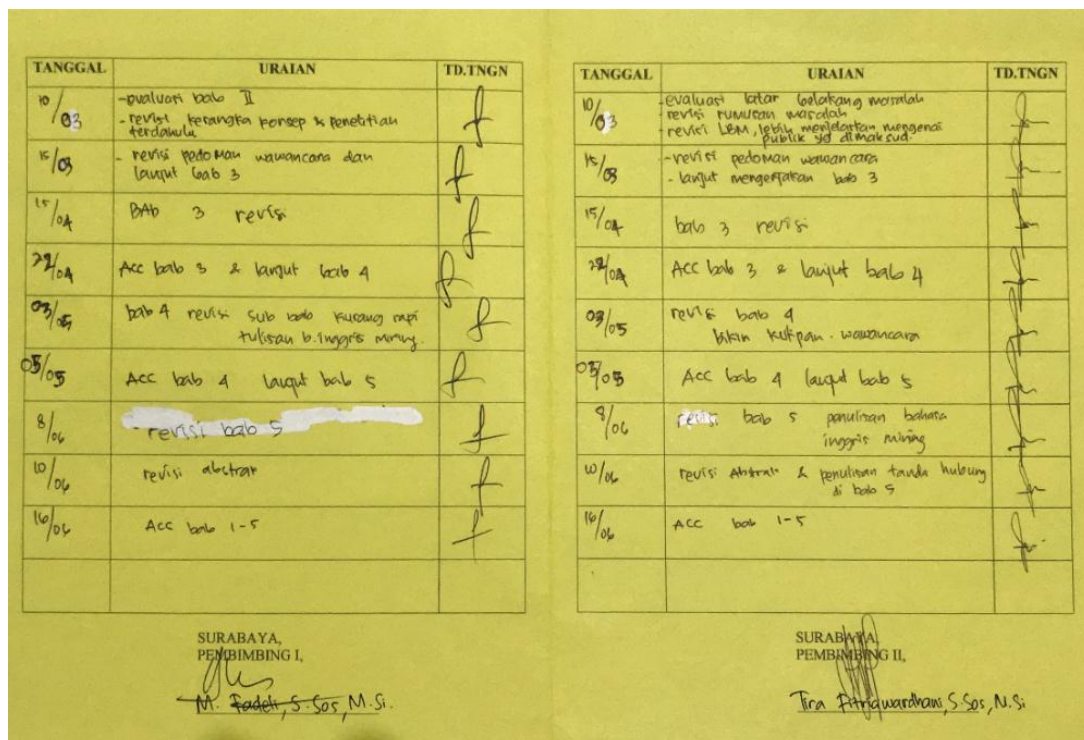 TANGGAL URAIAN TD.TNGN
10/03 -evaluasi bab II
- revisi kerangka konsep & penelitian
terdahulu
15/03 - revisi pedoman wawancara dan
lanjut bab 3
15/04 BAb 3 revisi
22/04 Acc bab 3 & lanjut bab 4
03/05 bab 4 revisi sub bab kurang rapi
tulisan b.inggris miring.
05/05 Acc bab 4 lanjut bab 5
8/06 revisi bab 5
10/06 revisi abstrak
16/06 Acc bab 1-5
SURABAYA,
PEMBIMBING I,
M. Fadeli, S.Sos, M.Si.
TANGGAL URAIAN TD.TNGN
10/03 -evaluasi latar belakang masalah
- revisi rumusan masalah
- revisi LBM, lebih menjelaskan mengenai
publik yg dimaksud.
15/03 -revisi pedoman wawancara
- lanjut mengerjakan bab 3
15/04 bab 3 revisi
22/04 Acc bab 3 & lanjut bab 4
03/05 revisi bab 4
bikin kutipan. wawancara
05/05 Acc bab 4 lanjut bab 5
8/06 revisi bab 5 penulisan bahasa
inggris miring
10/06 revisi Abstrak & penulisan tanda hubung
di bab 5
16/06 Acc bab 1-5
SURABAYA,
PEMBIMBING II,
Tira Fitriawardhani, S.Sos, M.Si